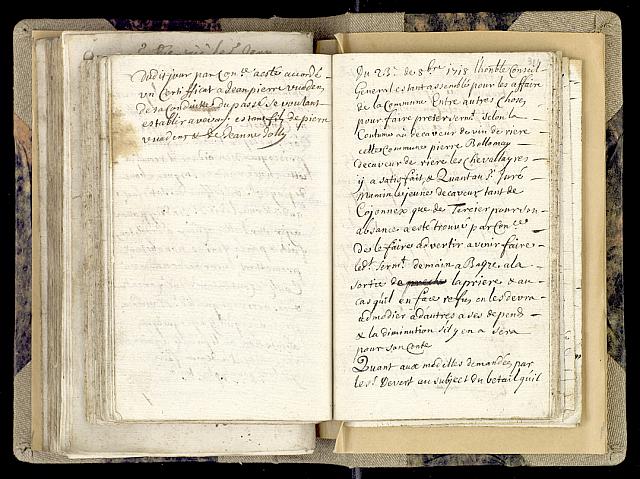 Dudit jour par Con.ce a esté accordé
un Certifficat a Jean pierre vuadens
de sa Conduitte du passé se voulant
establir a vevay estant fils de pierre
vuadens & de Jeanne Jolly
Du 23e de 8bre 1715 lhonble Conseil
General estant assemblé pour les affaire
de la Commune Entre autres Choses,
pour faire prester serm.t selon la
Coutume au decaveur de vin de riere
cette Commune pierre
decaveur de riere les Chevallayres
ij a satisfait, & Quant au Sr. Juré
Mamin le jeune decaveur tant de
Cojonnex que de Tercier pour son
absance a esté trouvé par Con.ce
de le faire advertir a venir faire
led.t serm.t demain a la
sortie de la priere & au
cas quil en face refus on les devra
admodier a dautres a ses depend
& la diminution s'il y en a sera
pour son Conte
Quant aux modilles demandez par
les Sr. Devert au subject du betail qu'il